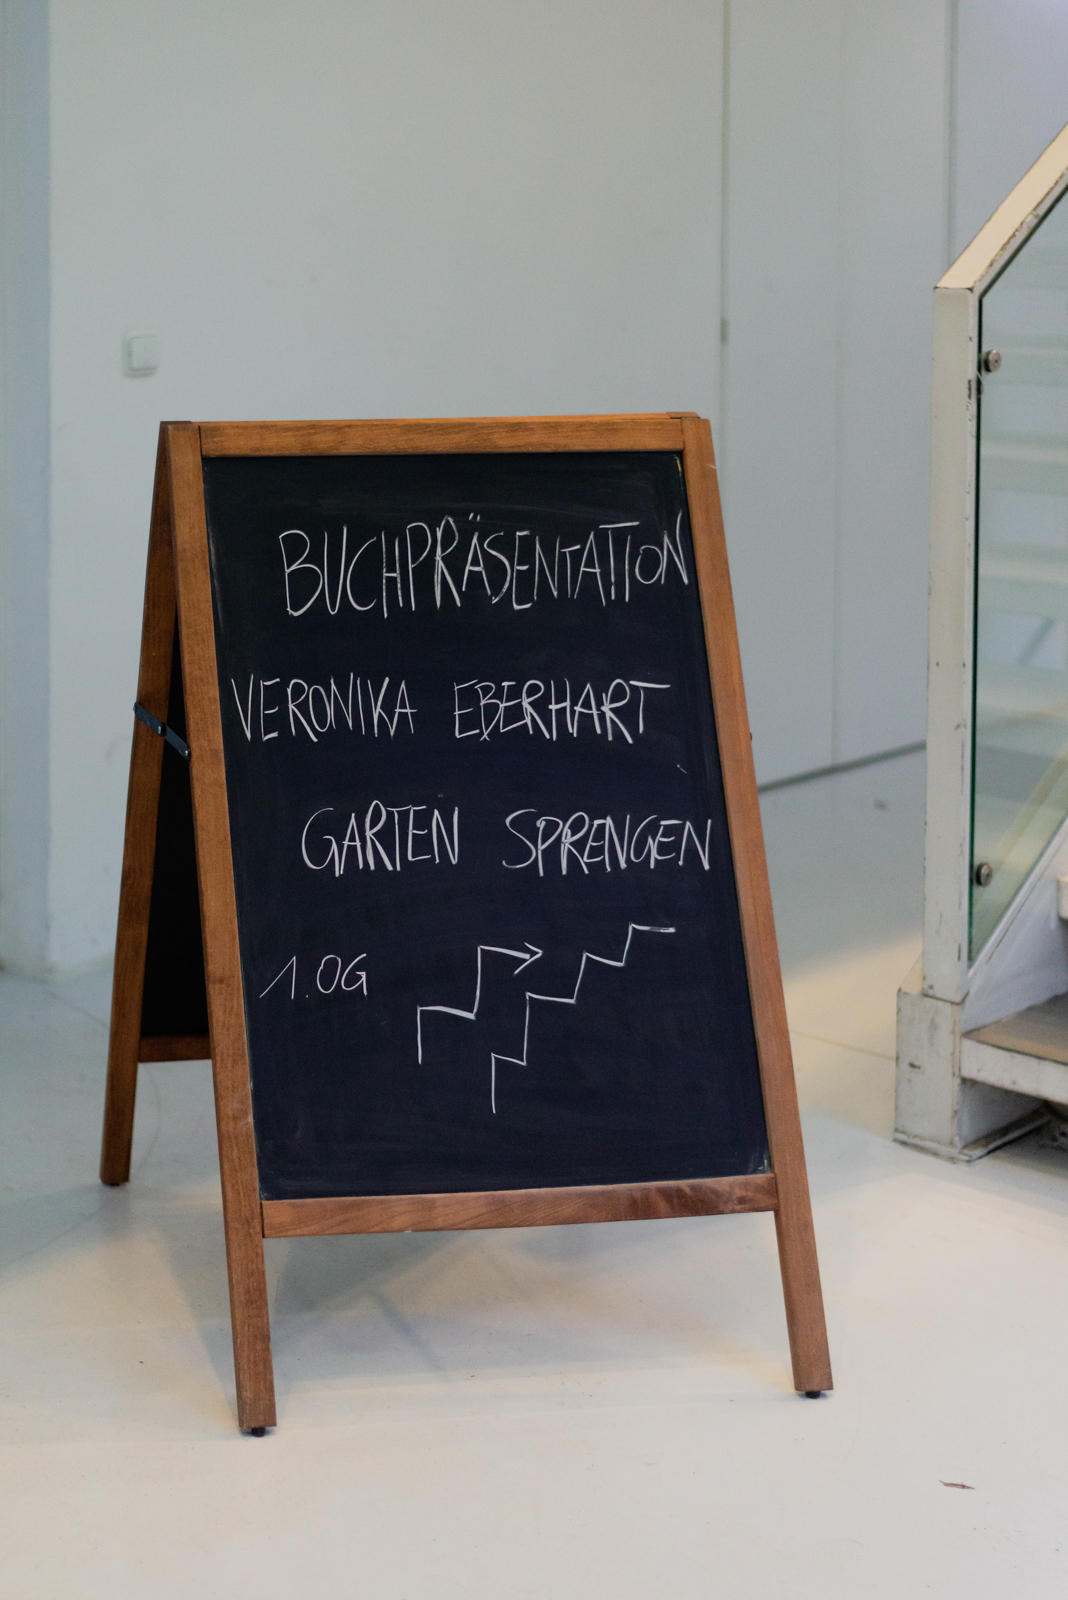 BUCHPRÄSENTATION
VERONIKA EBERHART
GARTEN SPRENGEN
1.OG